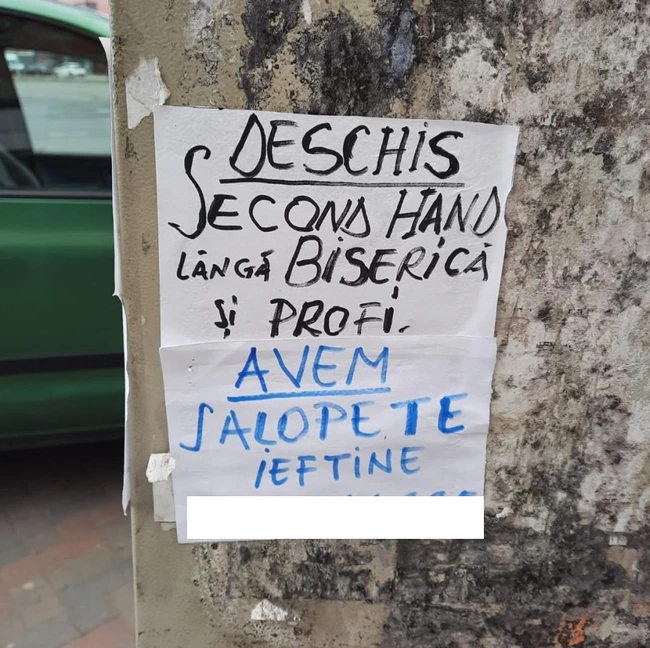 DESCHIS
SECOND HAND
LÂNGĂ BISERICĂ
ȘI PROFI.
AVEM
SALOPETE
IEFTINE